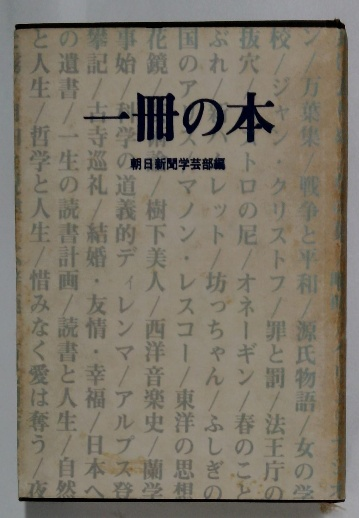 一冊の本
朝日新聞学芸部編
ン/万葉集/戦争と平和/源氏物語/女の学
校/ジャン・クリストフ/罪と罰/法王庁の
抜穴/トロの尼/オネーギン/春のこと
ぶれ/レット/坊っちゃん/ふしぎの
国のア/マノン・レスコー/東洋の思想
花鏡/樹下美人/西洋音楽史/蘭学
事始/科学の道義的ディレンマ/アルプス登
攀記/古寺巡礼/結婚・友情・幸福/日本へ
の遺書/一生の読書計画/読書と人生/自然
と人生/哲学と人生/惜みなく愛は奪う/夜